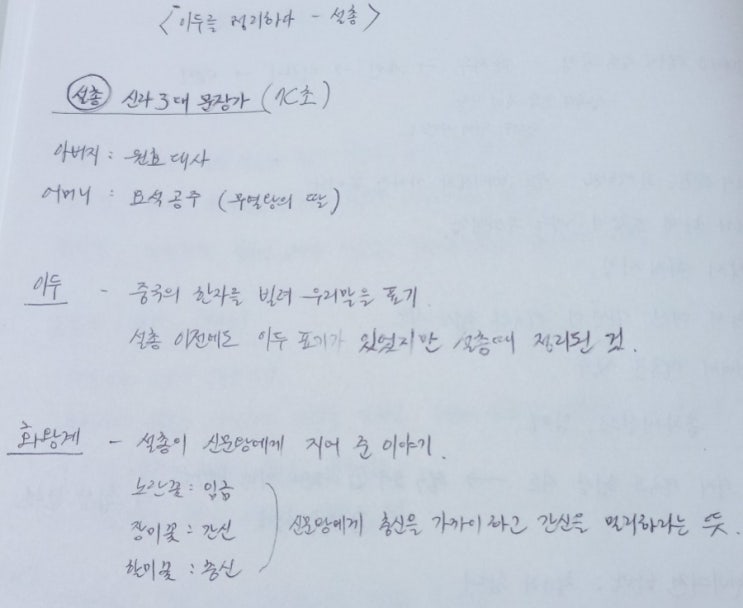 <이두를 정리하다 - 설총>
설총 신라 3대 문장가 (7C초)
아버지 : 원효대사
어머니 : 요석공주 (무열왕의 딸)
이두 - 중국의 한자를 빌려 우리말을 표기.
설총 이전에도 이두 표기가 있었지만 설총때 정리된 것.
화왕계 - 설총이 신문왕에게 지어 준 이야기.
노란꽃 : 임금
장미꽃 : 간신
할미꽃 : 충신
신문왕에게 충신을 가까이하고 간신을 멀리하라는 뜻.